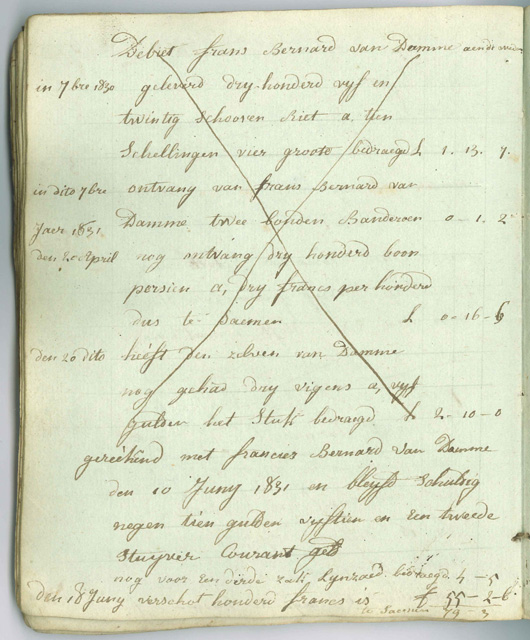 Debiet frans Bernard van Damme aen de
in 7bre 1830 geleverd dry-honderd vyf en
twintig Schooven Riet a, tien
Schellingen vier groote bedraegd £ 1. 13. 7.
in dito 7bre ontvang van frans Bernard van
Jaer 1831 Damme twee bonden Banderoen 0 - 1. 2
den 20 April nog ontvang dry honderd boon
persien a, dry francs per honderd
dus te Saemen £ 0 - 16 - 6
den 20 dito heeft den zelven van Damme
nog gehad dry vigens a, vyf
gulden het Stuk bedraegd £ 2 - 10 - 0
gerekend met francies Bernard van Damme
den 10 Juny 1831 en blyft Schulsig
negen tien gulden vyftien en een tweede
Stuyver Courant geld
nog voor een derde zak Lynzaed bedraegd 4 - 5
den 18 Juny verschot honderd francs is £ 55 - 2 - 6
te Saemen 79 - 3